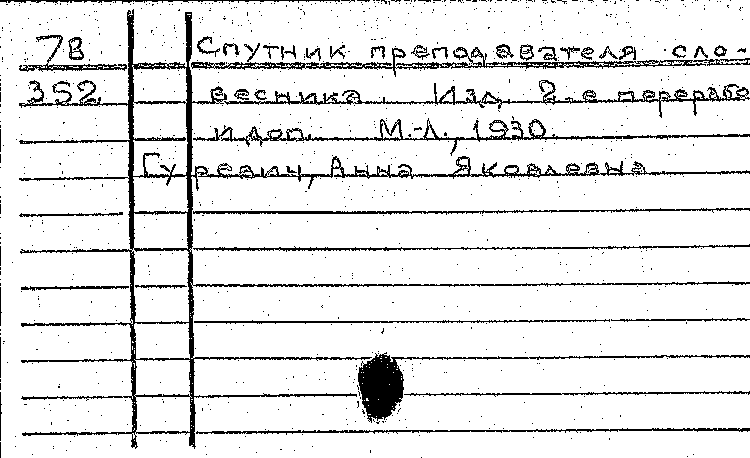 78 Спутник преподавателя сло-
352 весника. Изд. 2-е перерабо
и доп. М.-Л., 1930.
Гуревич, Анна Яковлевна